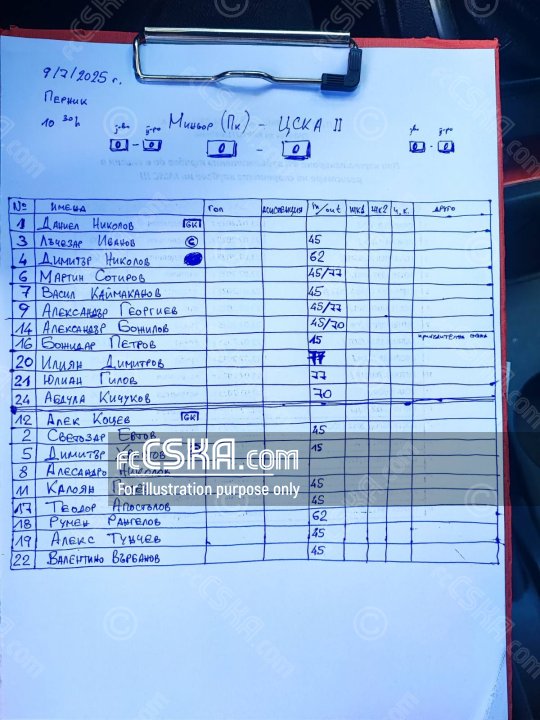 9/7/2025 г.
Перник
10 30 ч
Миньор (Пк) - ЦСКА II
0 - 0
0 - 0
0 - 0
№ ИМЕНА ГОЛ АСИСТЕНЦИЯ In/out ЖК1 ЖК2 Ч.К. ДРУГО
1 Даниел Николов GK
3 Лъчезар Иванов C 45
4 Димитър Николов 62
6 Мартин Сотиров 45/77
7 Васил Каймаканов 45
9 Александър Георгиев 45/77
14 Александър Божилов 45/70
16 Божидар Петров 15
20 Илиян Димитров 77
21 Юлиан Гилов 77
24 Абдула Кичуков 70
12 Алек Коцев GK
2 Светозар 45
5 Димитър 15
8 Алесандро Николов
11 Калоян 45
17 Теодор Апостолов 45
18 Румен Рангелов 62
19 Алекс Тунчев 45
22 Валентино Върбанов 45
fcCSKA.com
For illustration purpose only